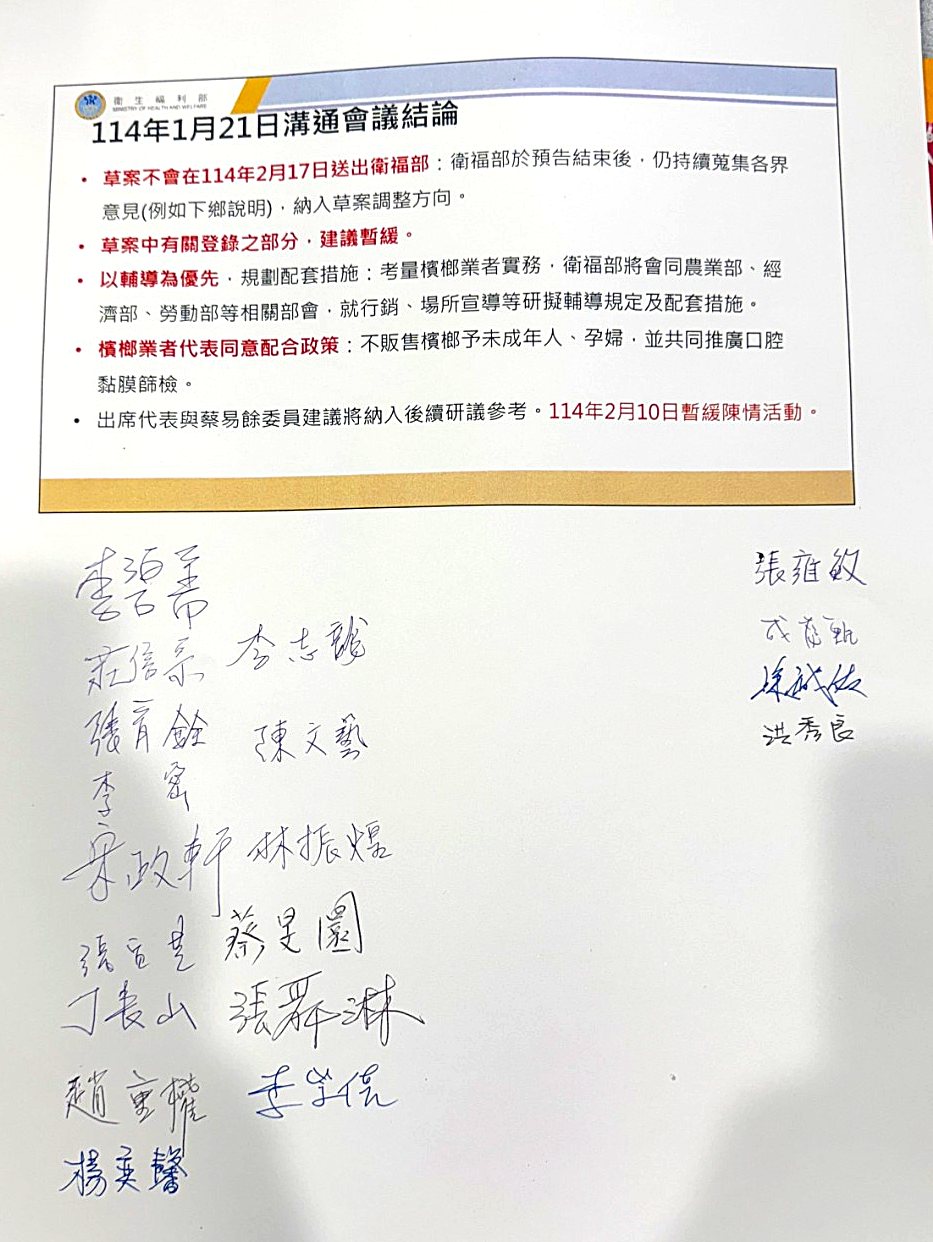 衛生福利部
MINISTRY OF HEALTH AND WELFARE
114年1月21日溝通會議結論
• 草案不會在114年2月17日送出衛福部：衛福部於預告結束後，仍持續蒐集各界
意見(例如下鄉說明)，納入草案調整方向。
• 草案中有關登錄之部分，建議暫緩。
• 以輔導為優先，規劃配套措施：考量檳榔業者實務，衛福部將會同農業部、經
濟部、勞動部等相關部會，就行銷、場所宣導等研擬輔導規定及配套措施。
• 檳榔業者代表同意配合政策：不販售檳榔予未成年人、孕婦，並共同推廣口腔
黏膜篩檢。
• 出席代表與蔡易餘委員建議將納入後續研議參考。114年2月10日暫緩陳情活動。
莊信宗 李志龍
張育銓 陳文藝
李密
宋政軒 林振煌
蔡旻園
丁長山 張
趙重權 李
楊奕馨
張雍敏
洪秀良